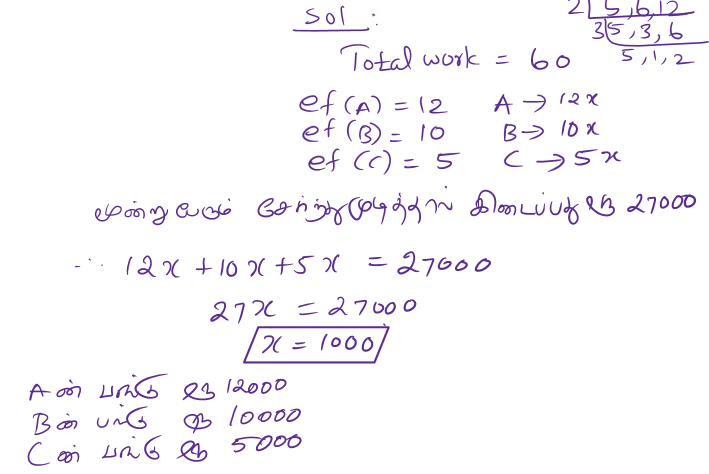 Sol :
2 | 5, 6, 12
3 | 5, 3, 6
5, 1, 2
Total work = 60
ef (A) = 12 A → 12x
ef (B) = 10 B → 10x
ef (C) = 5 C → 5x
மூன்று பேரும் சேர்ந்து முடித்தால் கிடைப்பது ரூ 27000
∴ 12x + 10x + 5x = 27000
27x = 27000
x = 1000
A ன் பங்கு ரூ 12000
B ன் பங்கு ரூ 10000
C ன் பங்கு ரூ 5000